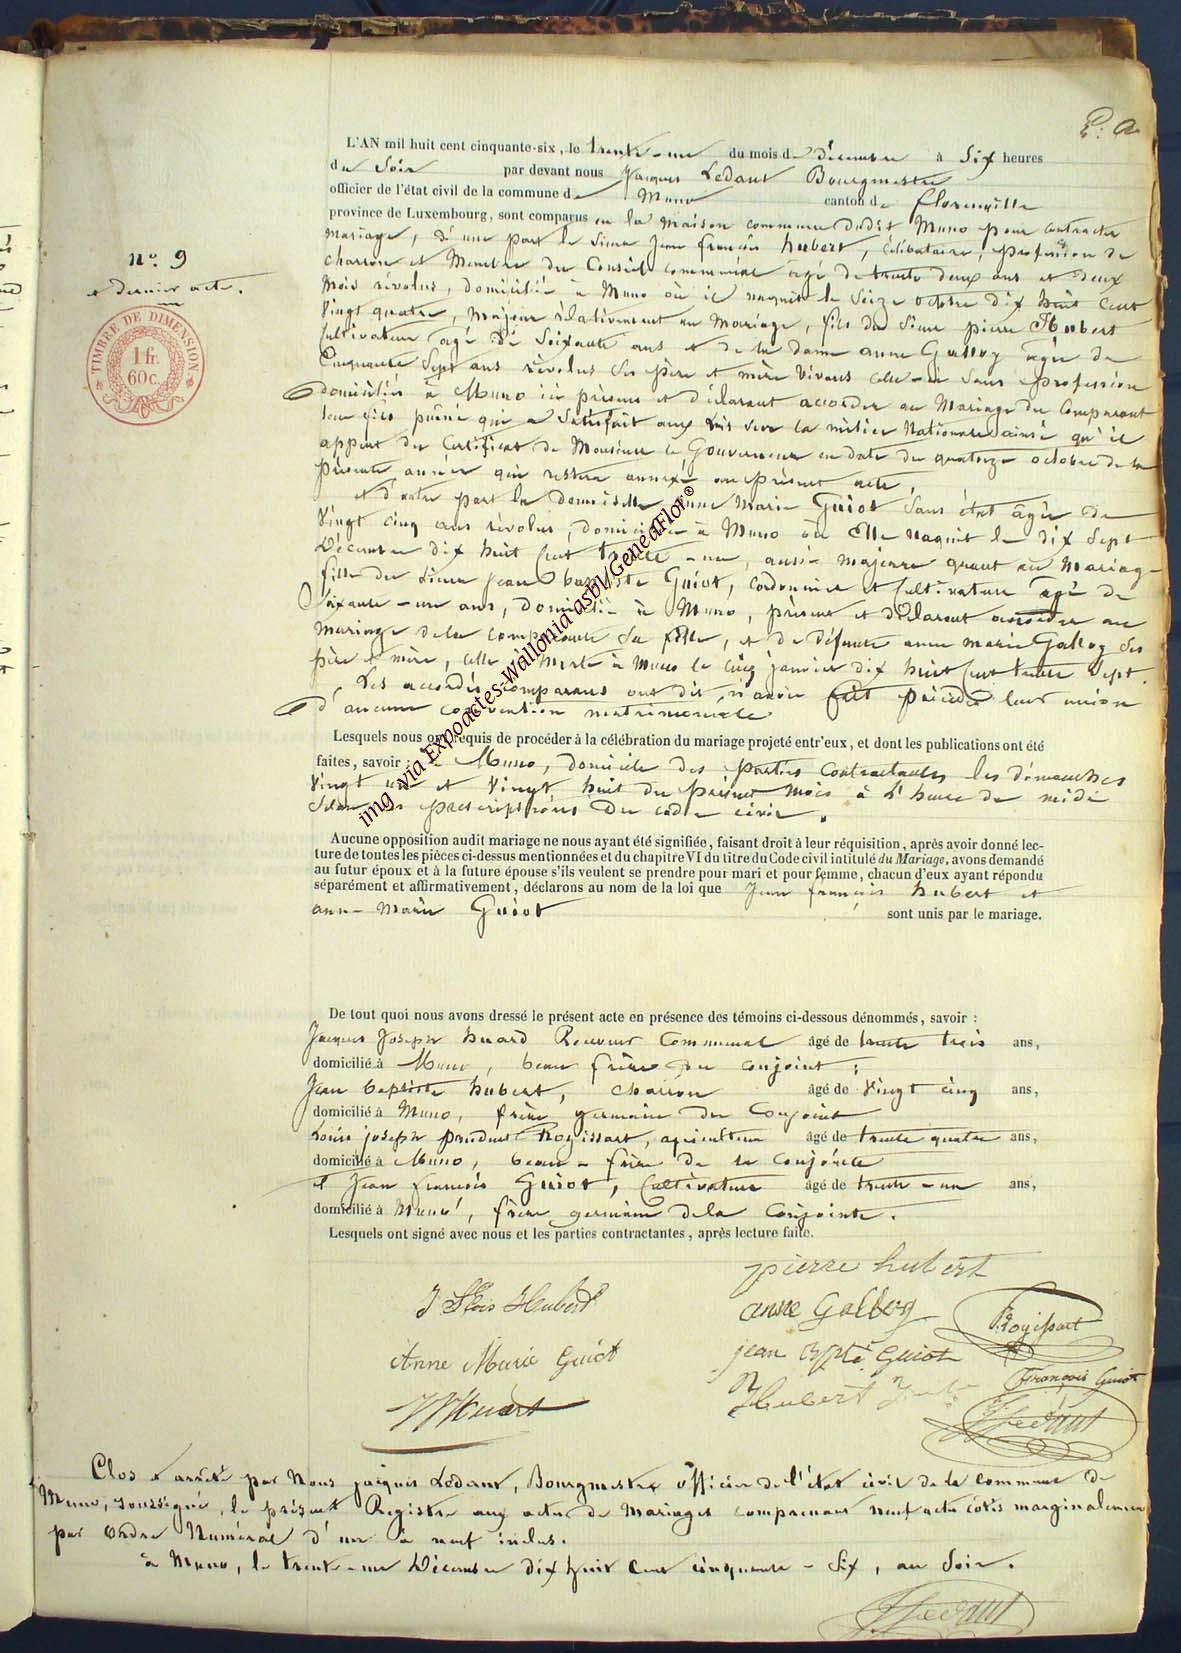 L'AN mil huit cent cinquante-six, le trente-un du mois de décembre à Six heures
du Soir par devant nous Jacques Ledant Bourgmestre
officier de l'état civil de la commune de Muno canton de florenville
province de Luxembourg, sont comparus en la Maison commune dudit Muno pour contracter
Mariage, d'une part le Sieur Jean françois hubert, Célibataire, profession de
charron et Membre du Conseil communal âgé de trente deux ans et deux
Mois révolus, domicilié à Muno où il naquit le Seize octobre dix huit Cent
Vingt quatre, Majeur rélativement au Mariage, fils du Sieur pierre Hubert
Cultivateur âgé de Soixante ans et de la dame anne Galloy âgée de
Cinquante Sept ans révolus Ses père et mère Vivans celle-ci Sans profession
domiciliés à Muno ici présens et déclarant accorder au Mariage du Comparant
leur fils puîné qui a Satisfait aux Lois Sur la milice Nationale ainsi qu'il
appert du Certificat de Monsieur le Gouverneur en date du quatorze octobre de la
présente année qui restera annexé au présent acte,
et d'autre part la demoiselle anne Marie Guiot Sans état âgée de
Vingt cinq ans révolus, domiciliée à Muno où Elle naquit le dix Sept
Décembre dix huit Cent trente-un, aussi majeure quant au Mariage
fille du Sieur Jean baptiste Guiot, cordonnier et Cultivateur âgé de
Soixante-un ans, domicilié à Muno, présent et déclarant accorder au
Mariage de la comparante Sa fille, et de défunte anne marie Galloy Ses
père et mère, celle-ci Morte à Muno le cinq janvier dix huit Cent trente Sept.
Les accordés comparans ont dit n'avoir fait précéder leur union
d'aucune convention matrimoniale
Lesquels nous ont requis de procéder à la célébration du mariage projeté entr'eux, et dont les publications ont été
faites, savoir : à Muno, domicile des parties Contractantes les dimanches
Vingt un et Vingt huit du présent Mois à l'heure de midi
Selon les prescriptions du code civil.
Aucune opposition audit mariage ne nous ayant été signifiée, faisant droit à leur réquisition, après avoir donné lec-
ture de toutes les pièces ci-dessus mentionnées et du chapitre VI du titre du Code civil intitulé du Mariage, avons demandé
au futur époux et à la future épouse s'ils veulent se prendre pour mari et pour femme, chacun d'eux ayant répondu
séparément et affirmativement, déclarons au nom de la loi que Jean françois hubert et
anne Marie Guiot sont unis par le mariage.
n° 9
et dernier acte.
TIMBRE DE DIMENSION
1 fr.
60 c.
De tout quoi nous avons dressé le présent acte en présence des témoins ci-dessous dénommés, savoir :
Jacques Joseph huard Receveur Communal âgé de trente trois ans,
domicilié à Muno, beau frère du conjoint ;
Jean baptiste hubert, charron âgé de Vingt cinq ans,
domicilié à Muno, frère germain du Conjoint
Louis joseph Royissart, agriculteur âgé de trente quatre ans,
domicilié à Muno, beau-frère de la conjointe
et Jean françois Guiot, Cultivateur âgé de trente-un ans,
domicilié à Muno, frère germain de la Conjointe.
Lesquels ont signé avec nous et les parties contractantes, après lecture faite.
pierre hubert
J Hubert
anne Galloy
Royissart
Anne Marie Guiot
jean Bpte Guiot
François Guiot
Hubert
Ledant
Clos et arrêté par Nous jacques Ledant, Bourgmestre officier de l'état civil de la commune de
Muno, soussigné, le présent Registre aux actes de Mariages comprenant neuf actes cotés marginalement
par Ordre Numéral d'un à neuf inclus.
à Muno, le trente-un Décembre dix huit Cent cinquante-Six, au Soir.
Ledant
img via Expoactes-Wallonia-asbl/GeneaFlor©